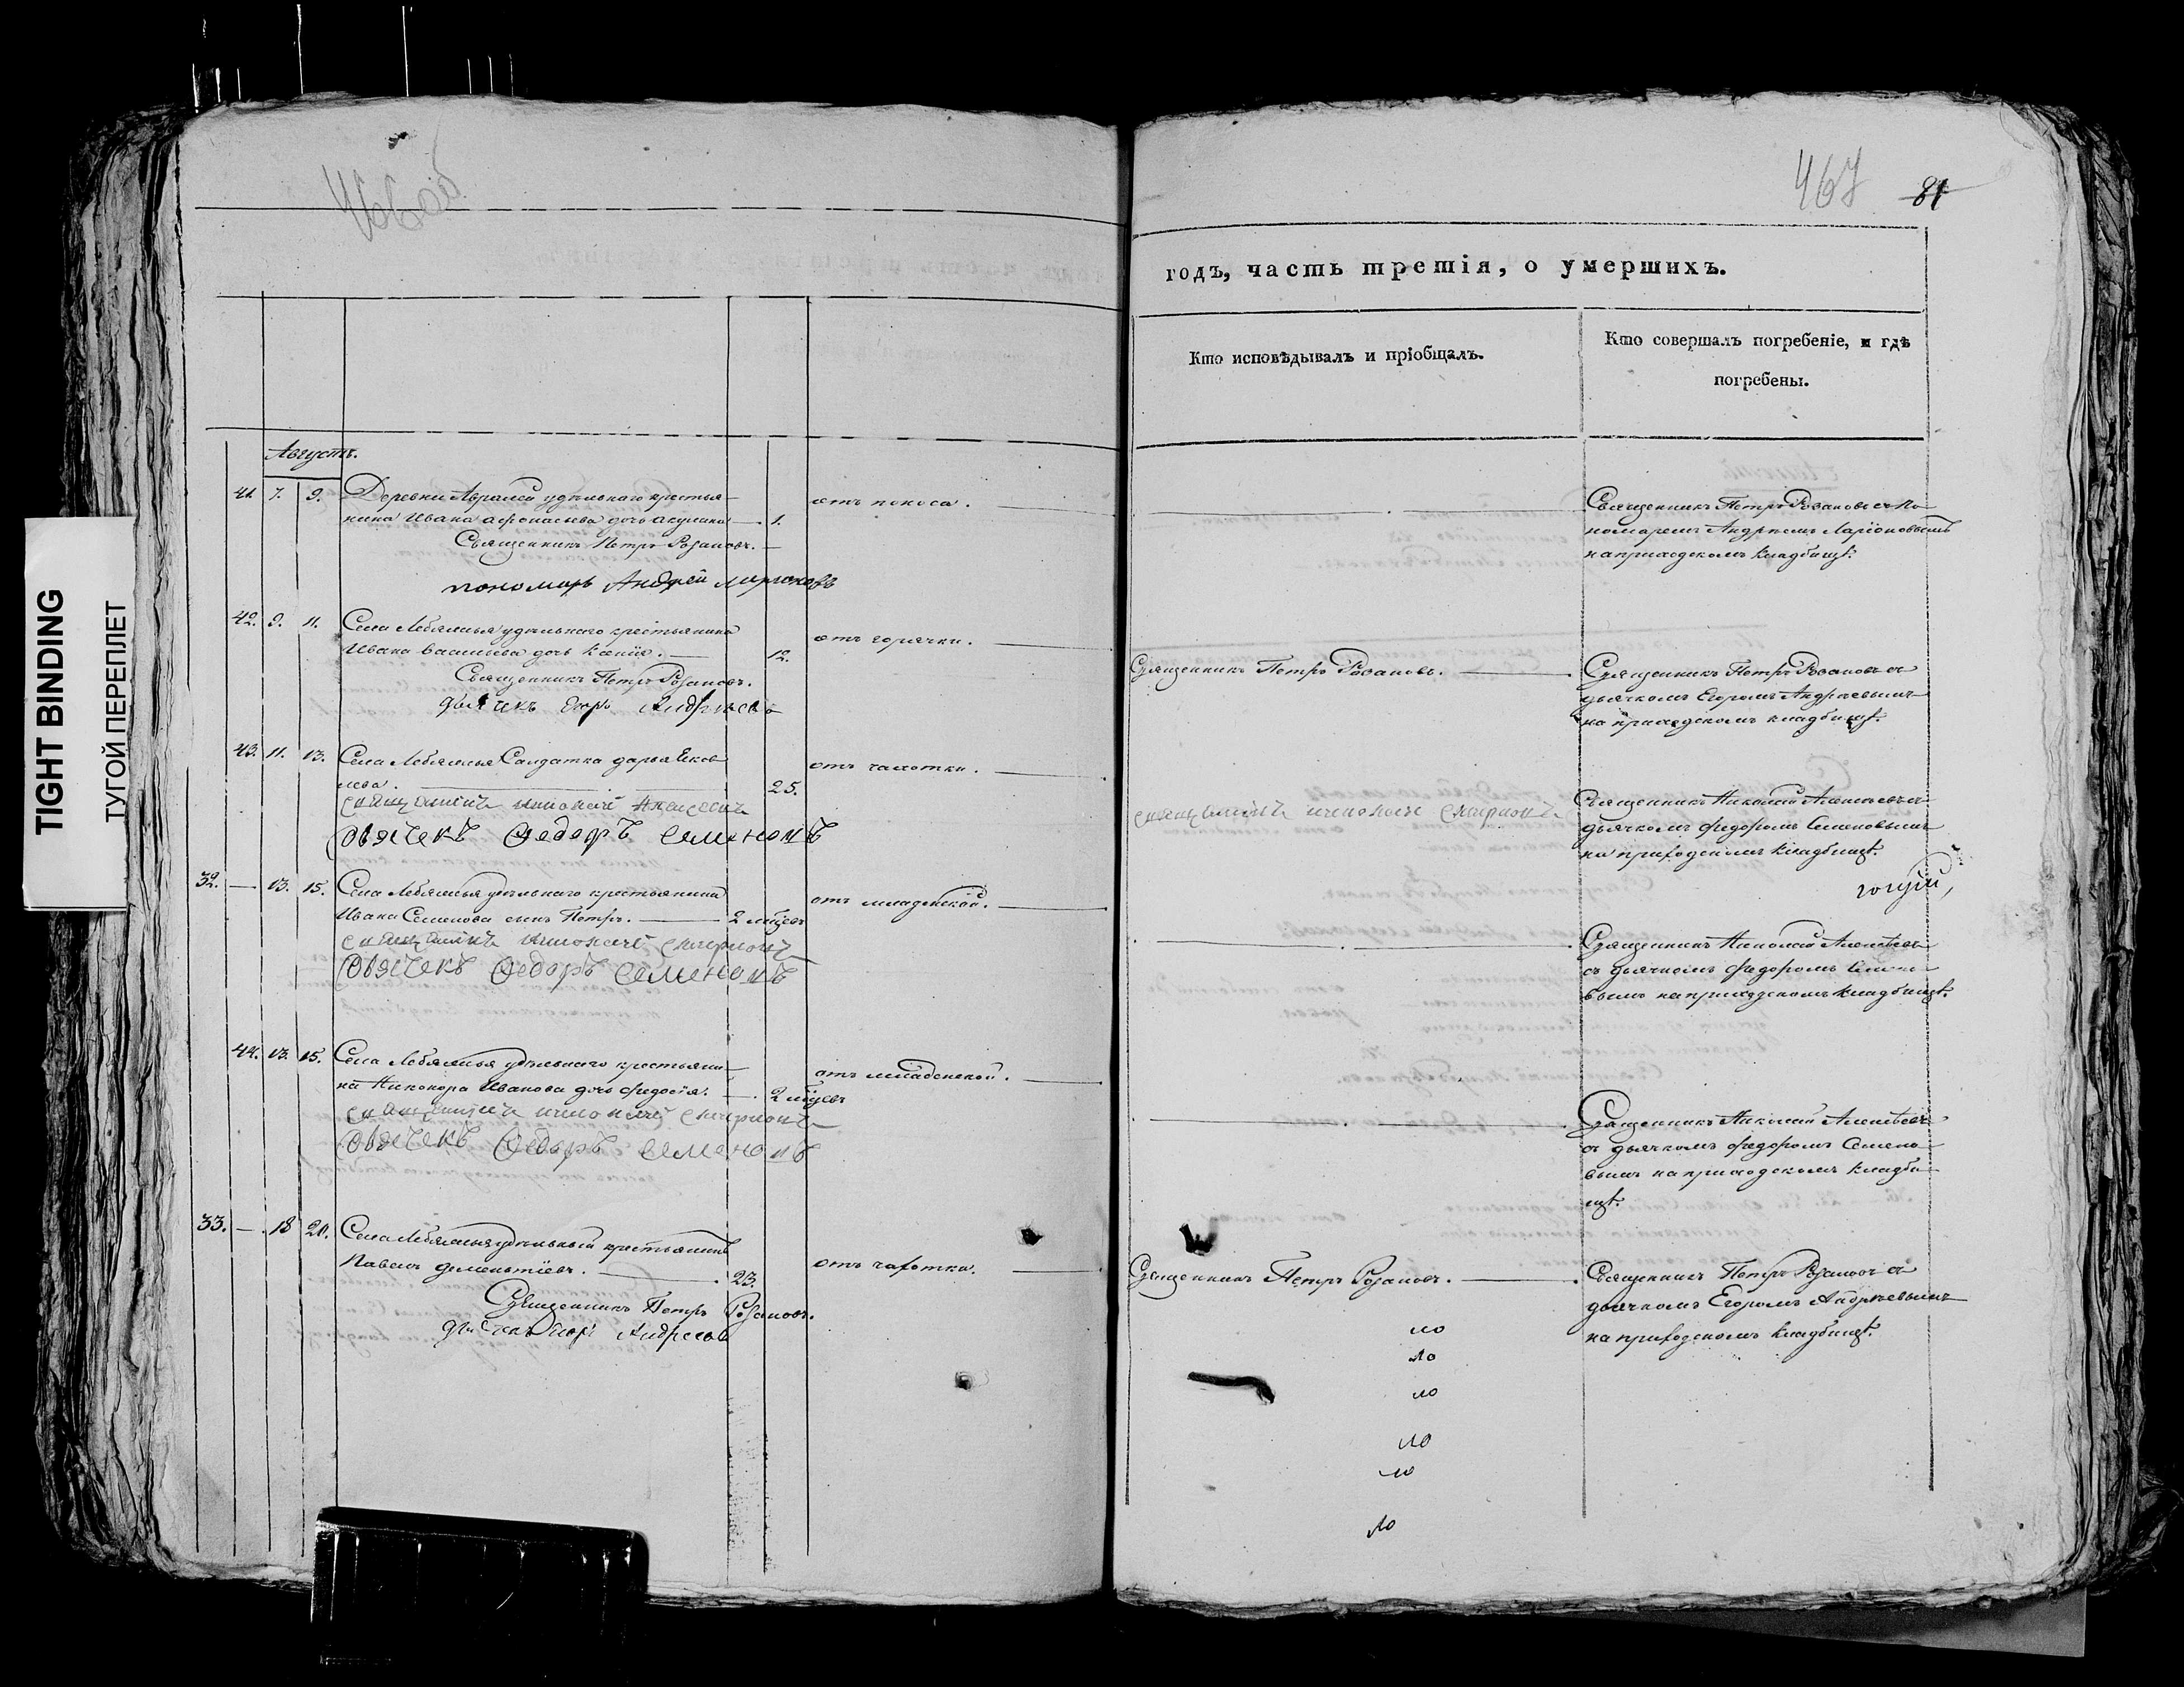 TIGHT BINDING
ТУГОЙ ПЕРЕПЛЕТ
466об
Августъ.
41. 7. 9. Деревни удѣльнаго крестья-
нина Ивана Афонасьева дочь Акулина 1. отъ поноса.
Священникъ Петръ Розановъ.
пономарь Андрей Ларионовъ
42. 9. 11. Села Лебяжья удѣльнаго крестьянина
Ивана Васильева дочь 12. отъ горячки.
Священникъ Петръ Розановъ.
дьячикъ Егоръ Андреевъ
43. 11. 13. Села Лебяжья Салдатка Дарья Яков-
лева. 25. отъ чахотки.
священникъ николай
дьячекъ Федоръ Семеновъ
32. — 13. 15. Села Лебяжья удѣльнаго крестьянина
Ивана Семенова сынъ Петръ. 2 мѣсецъ отъ младенской.
священникъ николай
дьячекъ Федоръ Семеновъ
44. 13. 15. Села Лебяжья удѣльнаго крестьяни-
на Никонора Иванова дочь Федосiя. 2 мѣсецъ отъ младенской.
священникъ николай
дьячекъ Федоръ Семеновъ
33. — 18 20. Села Лебяжья удѣльный крестьянинъ
Павелъ Дементiевъ. 23. отъ чахотки.
Священникъ Петръ Розановъ.
дьячикъ Егоръ Андреевъ
467 81
годъ, часть третiя, о умершихъ.
Кто исповѣдывалъ и прiобщалъ.
Кто совершалъ погребенiе, и гдѣ
погребены.
Священникъ Петръ Розановъ съ по-
номаремъ Андреемъ Ларiоновымъ
на приходскомъ кладбищѣ.
Священникъ Петръ Розановъ.
Священникъ Петръ Розановъ съ
дьячкомъ Егоромъ Андреевымъ
на приходскомъ кладбищѣ.
священникъ николай
Священникъ Николай Алексѣевъ съ
дьячкомъ Федоромъ Семеновымъ
на приходскомъ кладбищѣ.
Священникъ Николай Алексѣевъ
съ дьячкомъ Федоромъ Семено-
вымъ на приходскомъ кладбищѣ.
Священникъ Николай Алексѣевъ
съ дьячкомъ Федоромъ Семено-
вымъ на приходскомъ кладби-
щѣ.
Священникъ Петръ Розановъ.
Священникъ Петръ Розановъ съ
дьячкомъ Егоромъ Андреевымъ
на приходскомъ кладбищѣ.